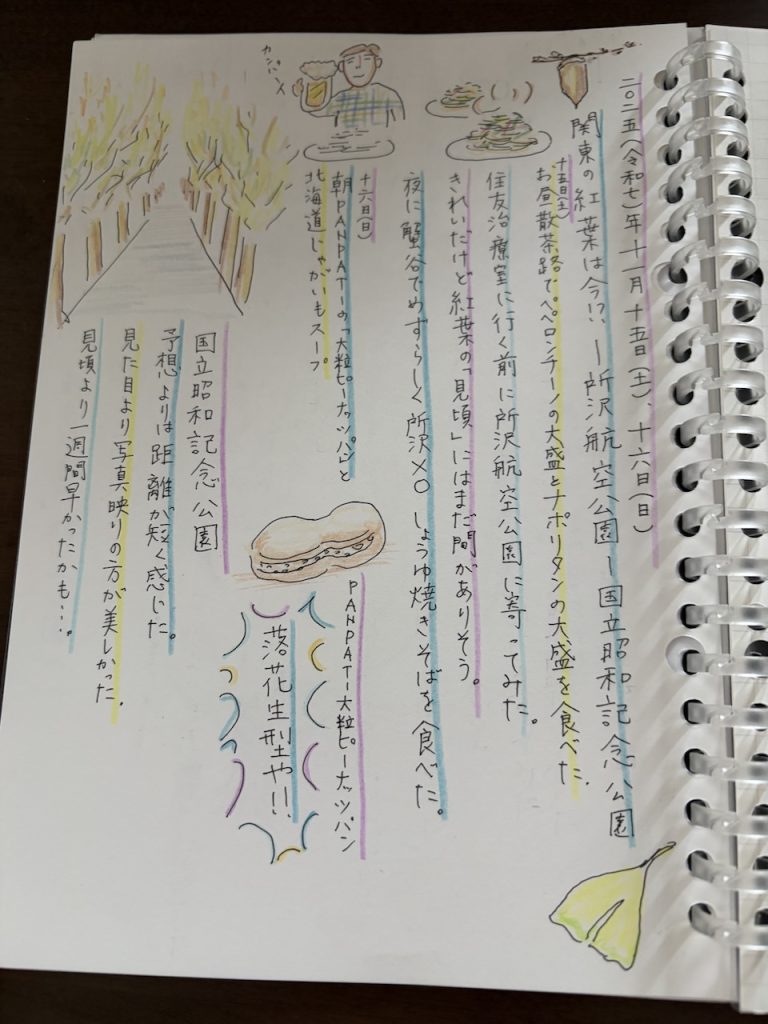 二〇二五(令和七)年十一月十五日(土)、十六日(日)
関東の紅葉は今!? ー所沢航空公園ー国立昭和記念公園
十五日(土)
お昼散茶路でペペロンチーノの大盛とナポリタンの大盛を食べた。
住友治療室に行く前に所沢航空公園に寄ってみた。
きれいだけど紅葉の「見頃」にはまだ間がありそう。
夜に蟹谷でめずらしく所沢XOしょうゆ焼きそばを食べた。
カンパーイ
十六日(日)
朝PANPATIの「大粒ピーナッツパン」と
北海道じゃがいもスープ
PANPATI大粒ピーナッツパン
落花生型や!!
国立昭和記念公園
予想よりは距離が短く感じた。
見た目より写真映りの方が美しかった。
見頃より一週間早かったかも…。